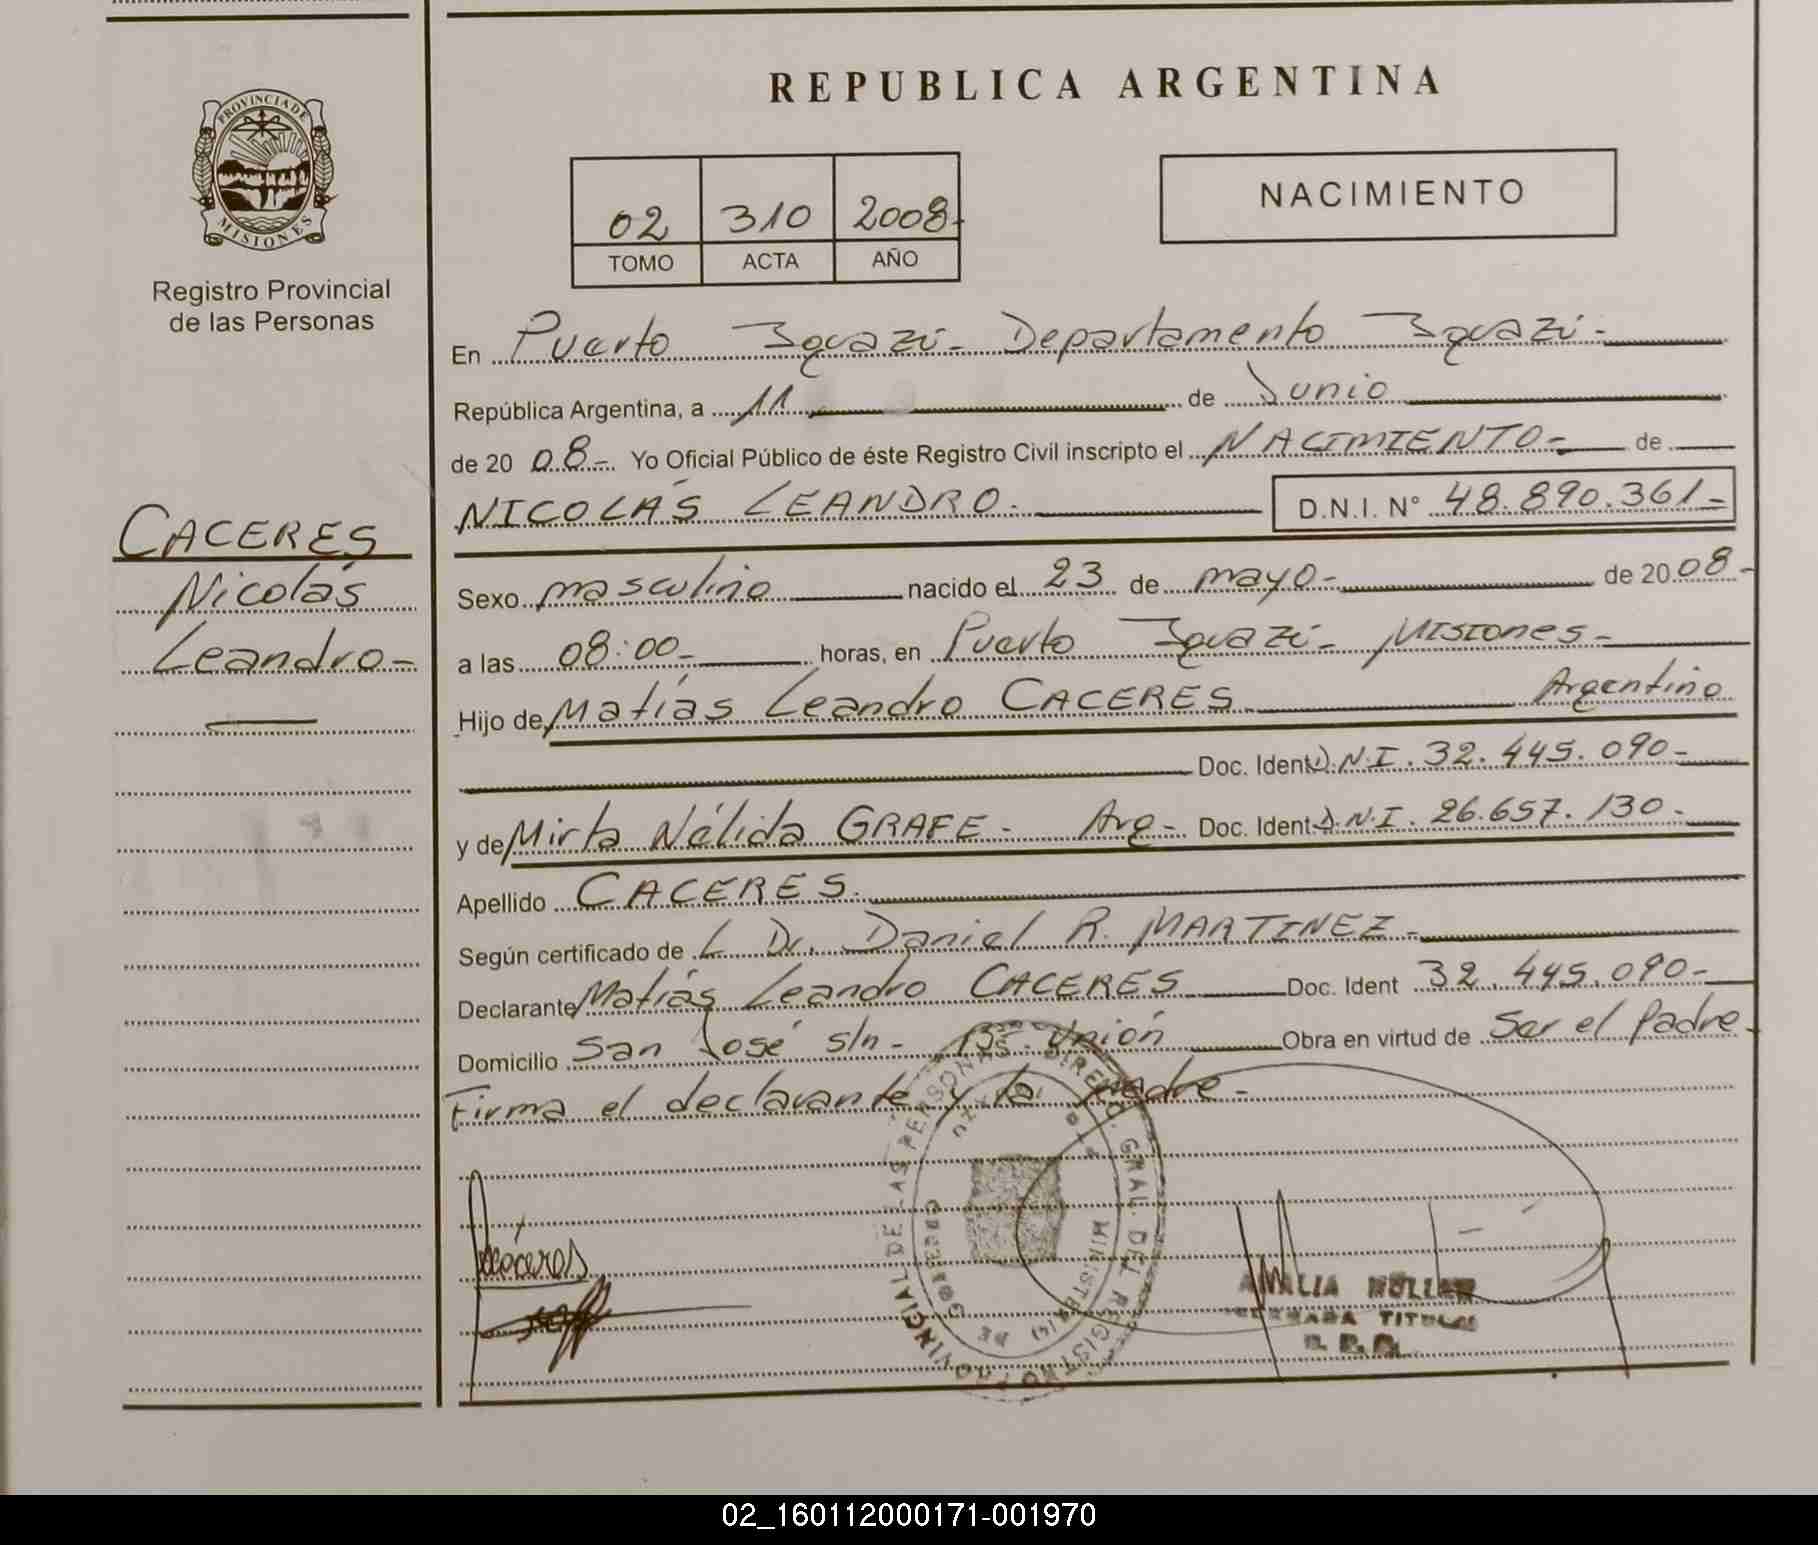 PROVINCIA DE
MISIONES
Registro Provincial
de las Personas
CACERES
Nicolás
Leandro-
REPUBLICA ARGENTINA
02 310 2008-
TOMO ACTA AÑO
NACIMIENTO
En Puerto Iguazú- Departamento Iguazú-
República Argentina, a 11 de Junio
de 20 08- Yo Oficial Público de éste Registro Civil inscripto el NACIMIENTO- de
NICOLÁS LEANDRO. D.N.I. N° 48.890.361-
Sexo masculino nacido el 23 de mayo- de 20 08-
a las 08:00- horas, en Puerto Iguazú- Misiones-
Hijo de Matías Leandro CACERES Argentino
Doc. Ident D.N.I. 32.445.090-
y de Mirta Nélida GRAFE- Arg- Doc. Ident D.N.I. 26.657.130-
Apellido CACERES.
Según certificado de L Dr. Daniel R. MARTINEZ-
Declarante Matías Leandro CACERES Doc. Ident 32.445.090-
Domicilio San José s/n- Bº Unión Obra en virtud de Ser el Padre-
Firma el declarante y la madre-
Cáceres
DIREC. GRAL. DEL REGISTRO PROVINCIAL DE LAS PERSONAS
MINISTERIO DE GOBIERNO
AMALIA MULLER
TITULAR
02_160112000171-001970